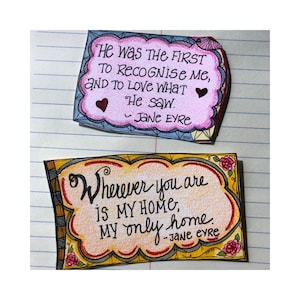 HE WAS THE FIRST
TO RECOGNISE ME,
AND TO LOVE WHAT
HE SAW.
~ JANE EYRE
Wherever you are
IS MY HOME,
MY only home.
- JANE EYRE